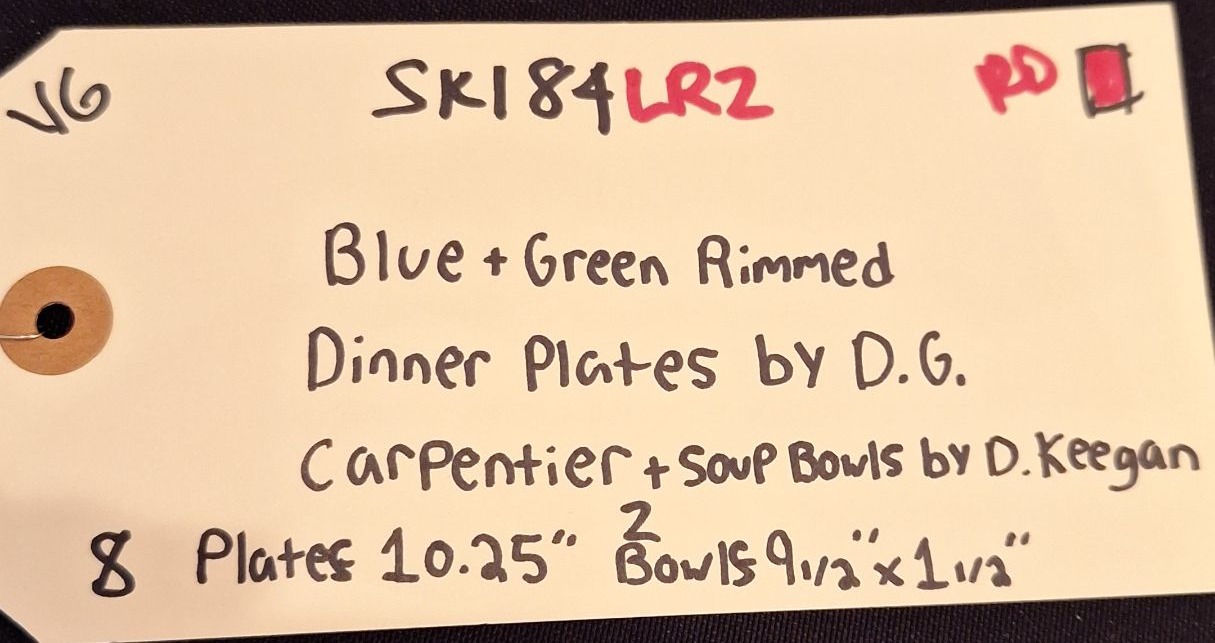 VG SK184LR2 RD
Blue + Green Rimmed
Dinner Plates by D.G.
Carpentier + Soup Bowls by D. Keegan
8 Plates 10.25" 2 Bowls 9 1/2" x 1 1/2"